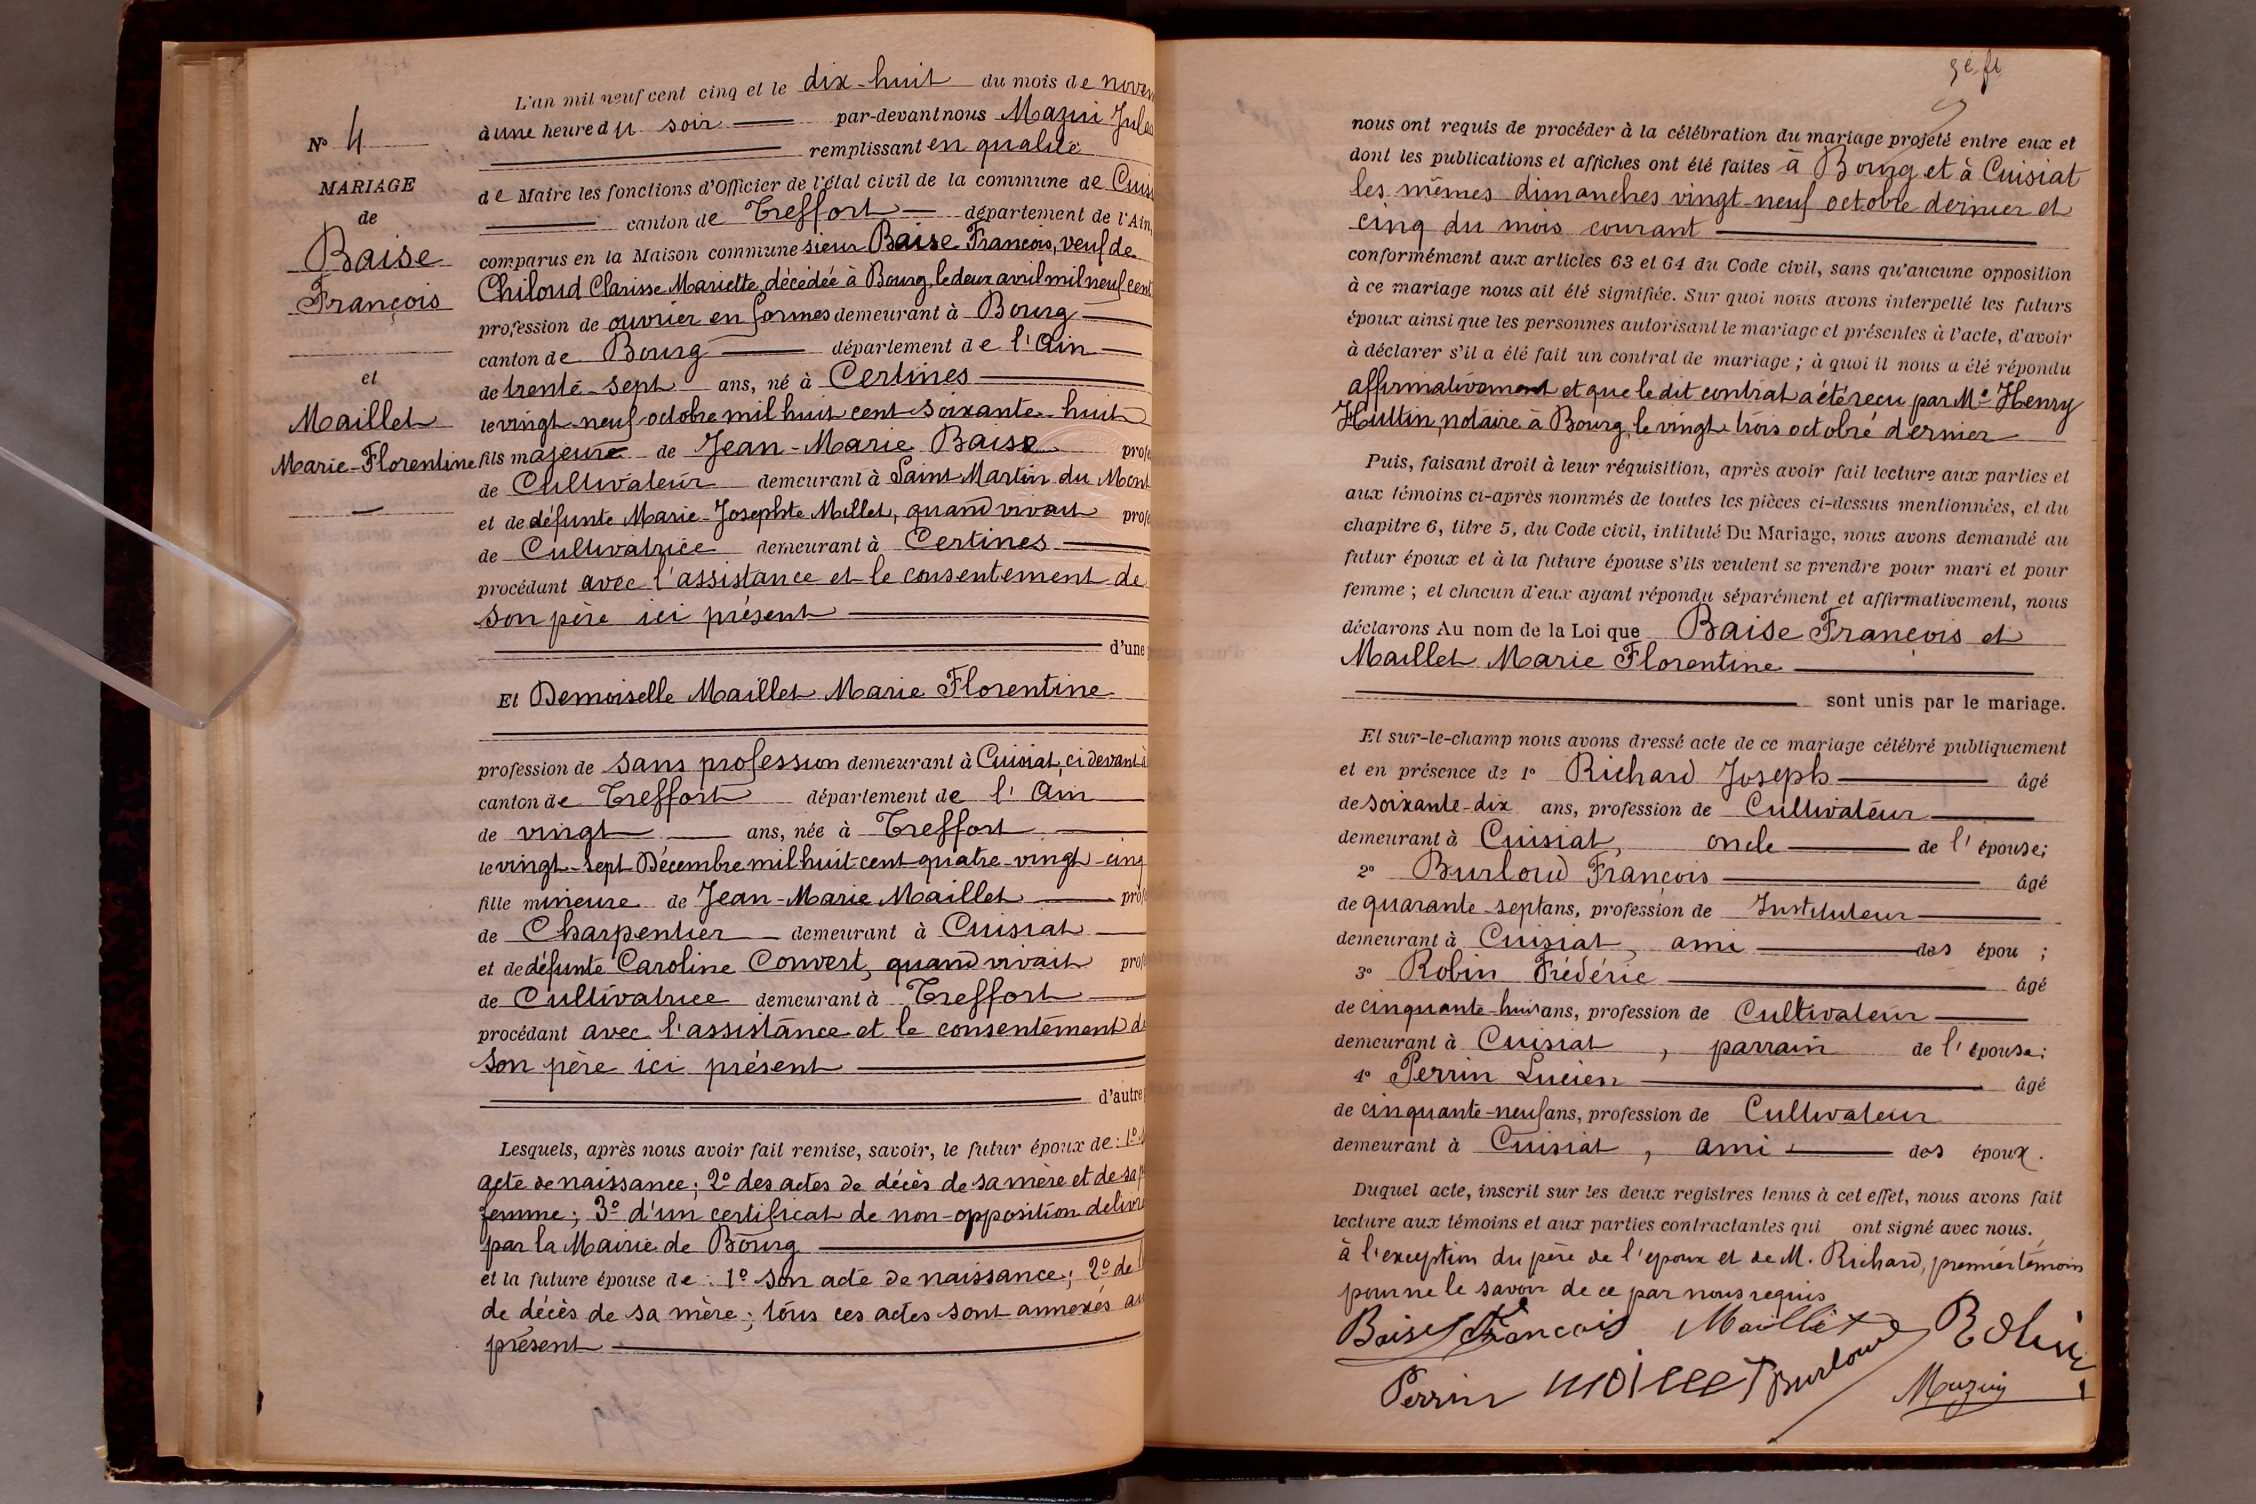 L'an mil neuf cent cinq et le dix-huit du mois de novem
à une heure du soir par-devant nous Mazuir Jules
remplissant en qualité
N° 4
de Maire les fonctions d'Officier de l'état civil de la commune de Cuisi
MARIAGE
canton de Treffort département de l'Ain,
de
comparus en la Maison commune sieur Baise François, veuf de
Baise
Chiloud Clarisse Mariette, décédée à Bourg, le deux avril mil neuf cent
François
profession de ouvrier en formes demeurant à Bourg
canton de Bourg département de l'Ain
et
de trente-sept ans, né à Certines
Maillet
le vingt-neuf octobre mil huit cent soixante-huit
Marie-Florentine
fils majeur de Jean-Marie Baise profe
de Cultivateur demeurant à Saint Martin du Mont
et de défunte Marie-Josephte Millet, quand vivait profe
de Cultivatrice demeurant à Certines
procédant avec l'assistance et le consentement de
son père ici présent
d'une
Et Demoiselle Maillet Marie Florentine
profession de sans profession demeurant à Cuisiat, ci devant à
canton de Treffort département de l'Ain
de vingt ans, née à Treffort
le vingt-sept Décembre mil huit cent quatre-vingt-cinq
fille mineure de Jean-Marie Maillet profe
de Charpentier demeurant à Cuisiat
et de défunte Caroline Convert, quand vivait profe
de Cultivatrice demeurant à Treffort
procédant avec l'assistance et le consentement de
son père ici présent
d'autre
Lesquels, après nous avoir fait remise, savoir, le futur époux de : 1°
acte de naissance ; 2° des actes de décès de sa mère et de sa
femme ; 3° d'un certificat de non-opposition délivré
par la Mairie de Bourg
et la future épouse de : 1° son acte de naissance ; 2° de l
de décès de sa mère ; tous ces actes sont annexés au
présent
nous ont requis de procéder à la célébration du mariage projeté entre eux et
dont les publications et affiches ont été faites à Bourg et à Cuisiat
les mêmes dimanches vingt-neuf octobre dernier et
cinq du mois courant
conformément aux articles 63 et 64 du Code civil, sans qu'aucune opposition
à ce mariage nous ait été signifiée. Sur quoi nous avons interpellé les futurs
époux ainsi que les personnes autorisant le mariage et présentes à l'acte, d'avoir
à déclarer s'il a été fait un contrat de mariage ; à quoi il nous a été répondu
affirmativement et que le dit contrat a été reçu par Me Henry
Hultin, notaire à Bourg, le vingt-trois octobre dernier
Puis, faisant droit à leur réquisition, après avoir fait lecture aux parties et
aux témoins ci-après nommés de toutes les pièces ci-dessus mentionnées, et du
chapitre 6, titre 5, du Code civil, intitulé Du Mariage, nous avons demandé au
futur époux et à la future épouse s'ils veulent se prendre pour mari et pour
femme ; et chacun d'eux ayant répondu séparément et affirmativement, nous
déclarons Au nom de la Loi que Baise François et
Maillet Marie Florentine
sont unis par le mariage.
Et sur-le-champ nous avons dressé acte de ce mariage célébré publiquement
et en présence de 1° Richard Joseph âgé
de soixante-dix ans, profession de Cultivateur
demeurant à Cuisiat, oncle de l'épouse ;
2° Burloud François âgé
de quarante-sept ans, profession de Instituteur
demeurant à Cuisiat, ami des épou ;
3° Robin Frédéric âgé
de cinquante-huit ans, profession de Cultivateur
demeurant à Cuisiat, parrain de l'épouse ;
4° Perrin Lucien âgé
de cinquante-neuf ans, profession de Cultivateur
demeurant à Cuisiat, ami des époux.
Duquel acte, inscrit sur les deux registres tenus à cet effet, nous avons fait
lecture aux témoins et aux parties contractantes qui ont signé avec nous.
à l'exception du père de l'époux et de M. Richard, premier témoin
pour ne le savoir de ce par nous requis
Baise François Maillet Robin
Perrin Maillet Burloud Mazuir